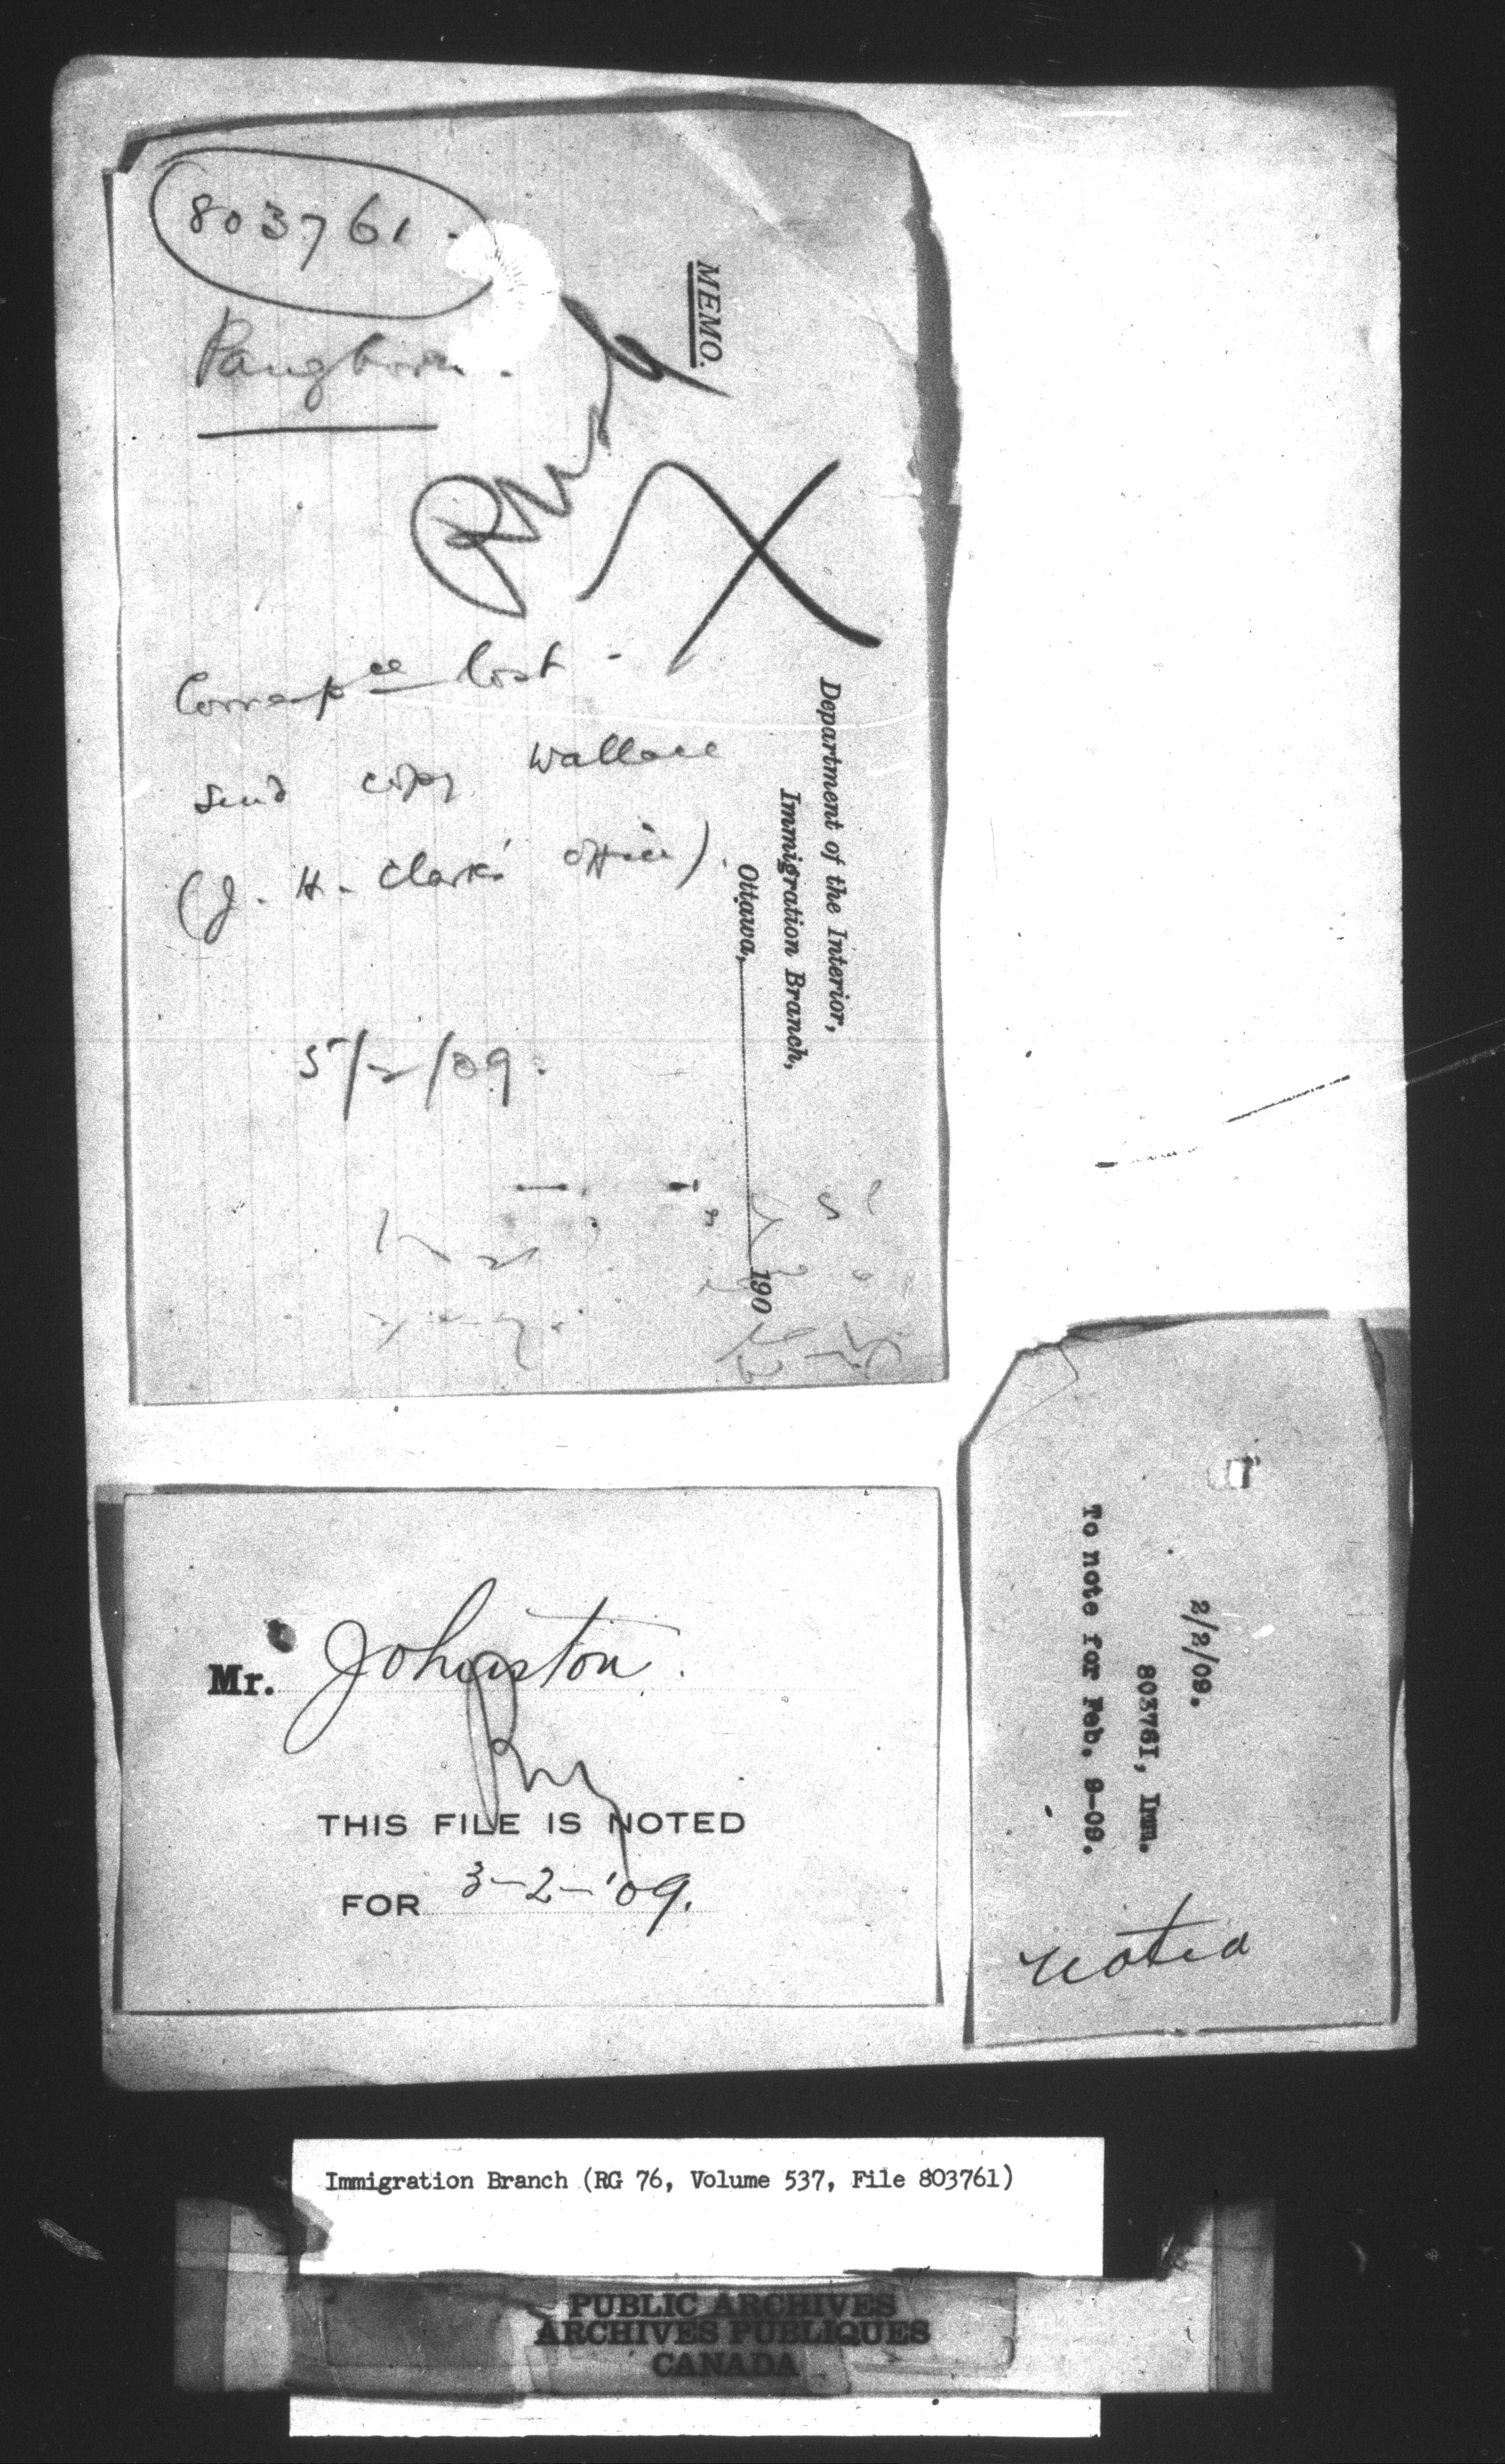 803761.
Pangborn.
MEMO.
Department of the Interior,
Immigration Branch,
Ottawa, 190
Correspce lost -
send copy Wallace
(J. H. Clark's office).
5/2/09.
Mr. Johnston.
THIS FILE IS NOTED
FOR 3-2-'09.
2/2/09.
803761, Imm.
To note for Feb. 9-09.
Noted
Immigration Branch (RG 76, Volume 537, File 803761)
PUBLIC ARCHIVES
ARCHIVES PUBLIQUES
CANADA